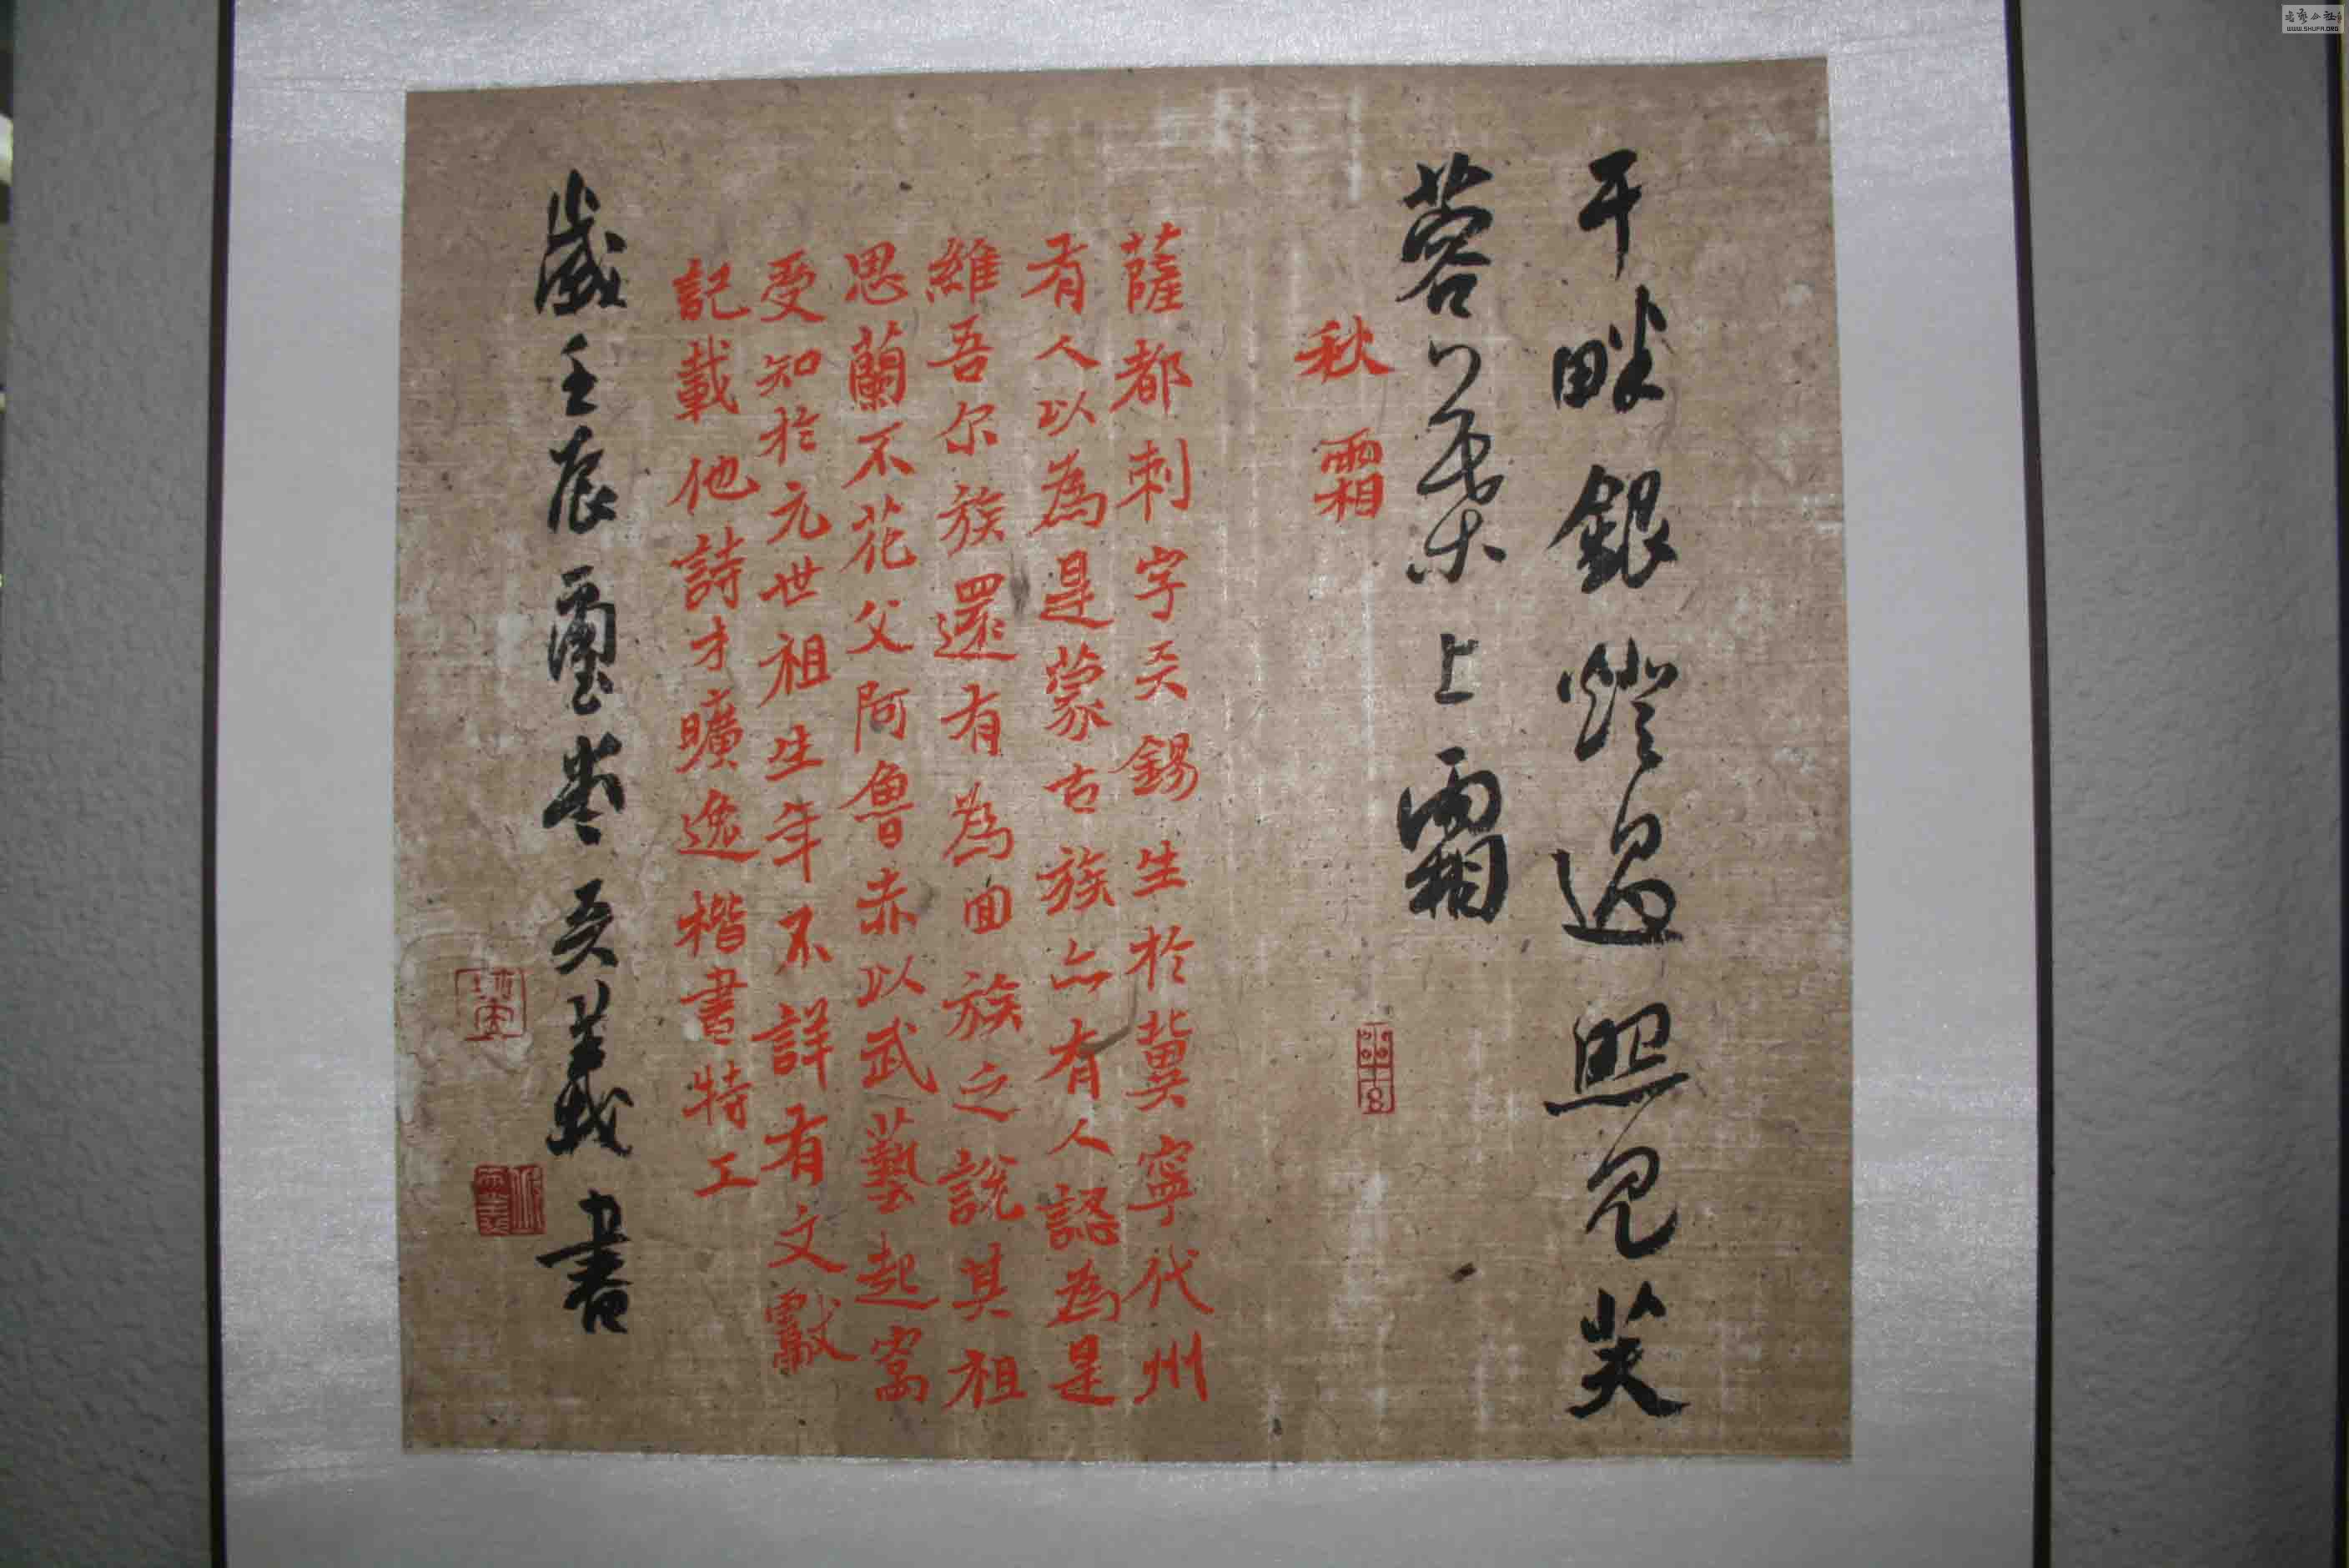 干畔銀燈過照見芙
蓉葉上霜
秋霜
薩都刺字天錫生於冀寧代州
有人以為是蒙古族亦有人認為是
維吾尔族還有為回族之說其祖
思蘭不花父阿魯赤以武藝起家
受知於元世祖生年不詳有文獻
記載他詩才曠逸楷書特工
歲壬辰吴義書
书艺公社
WWW.SHUFA.ORG